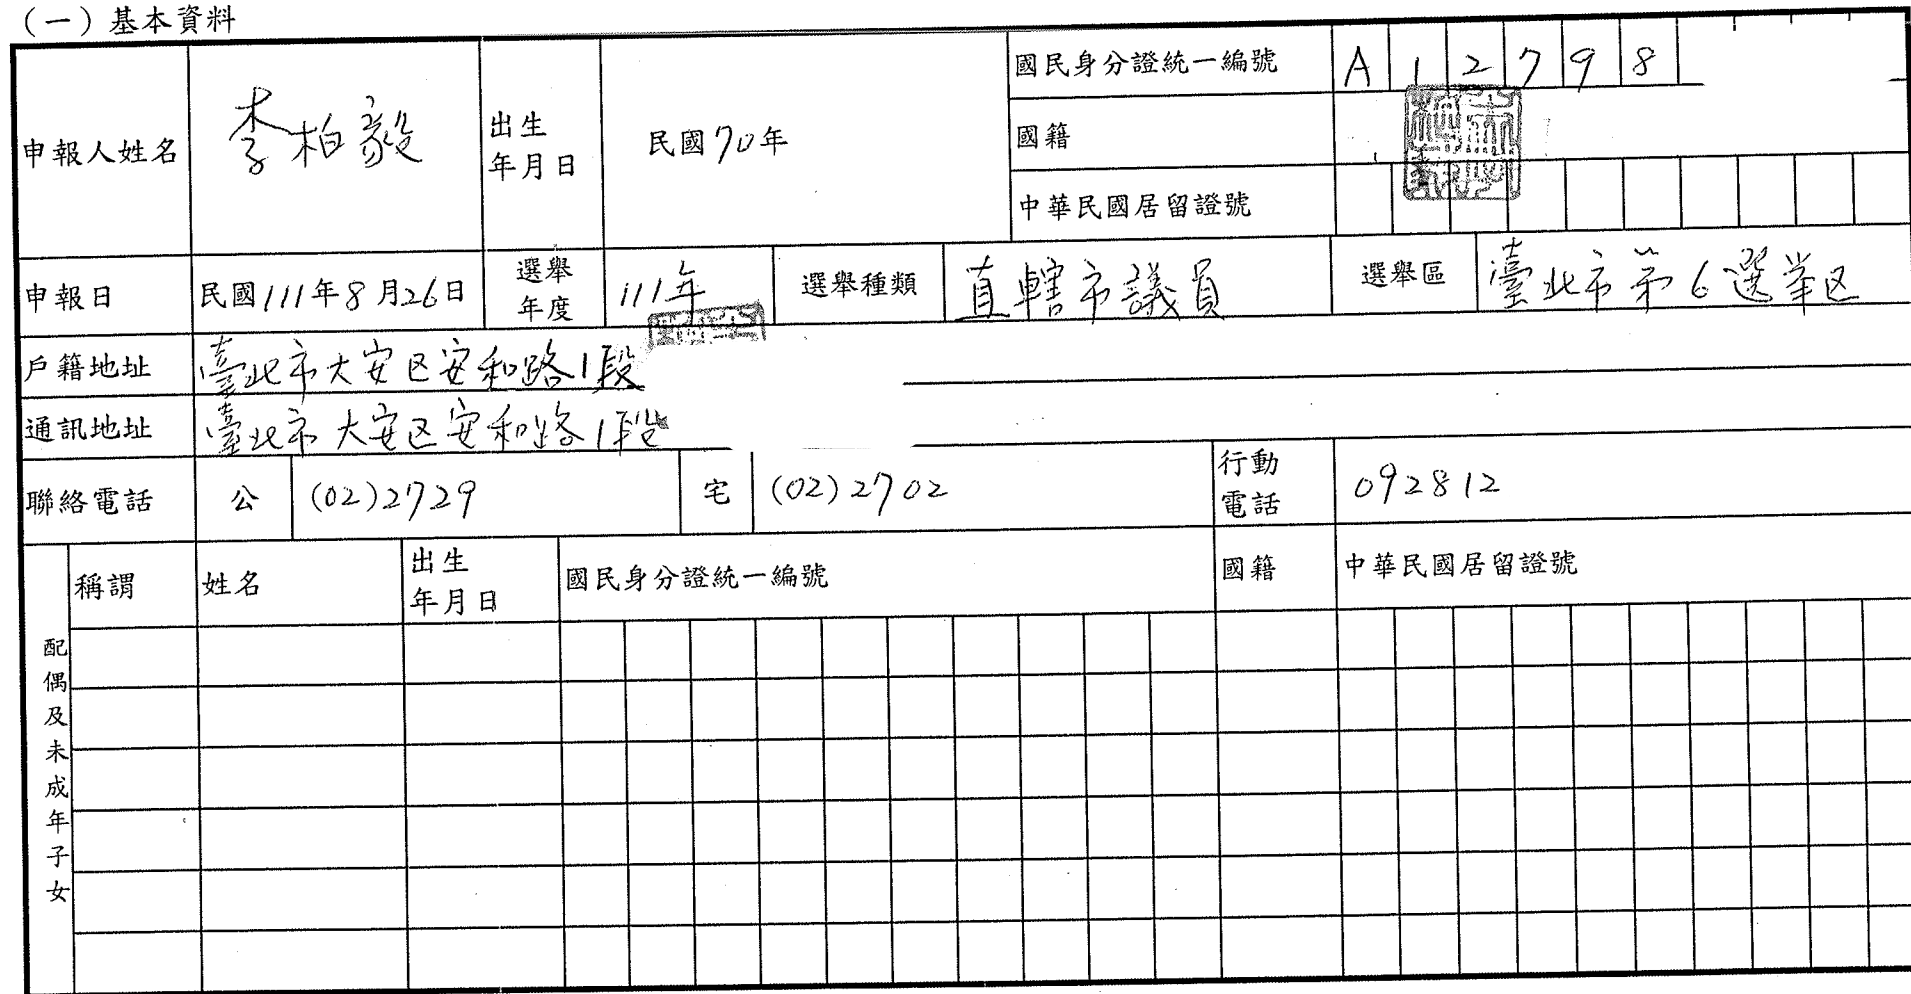 (一)基本資料
申報人姓名 李柏毅 出生年月日 民國70年 國民身分證統一編號 A12798
國籍
中華民國居留證號
申報日 民國111年8月26日 選舉年度 111年 選舉種類 直轄市議員 選舉區 臺北市第6選举区
戶籍地址 臺北市大安区安和路1段
通訊地址 臺北市大安区安和路1段
聯絡電話 公 (02)2729 宅 (02)2702 行動電話 092812
配偶及未成年子女 稱謂 姓名 出生年月日 國民身分證統一編號 國籍 中華民國居留證號